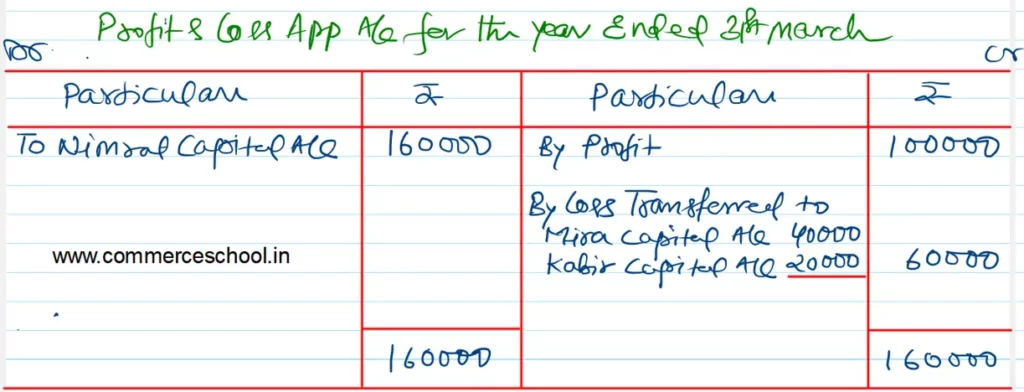 Profit & Loss App A/c for the year Ended 31st March
Dr
Cr
Particulars ₹ Particulars ₹
To Nirmal Capital A/c 160000 By Profit 100000
By Loss Transferred to
Mira Capital A/c 40000
www.commerceschool.in Kabir Capital A/c 20000 60000
160000 160000